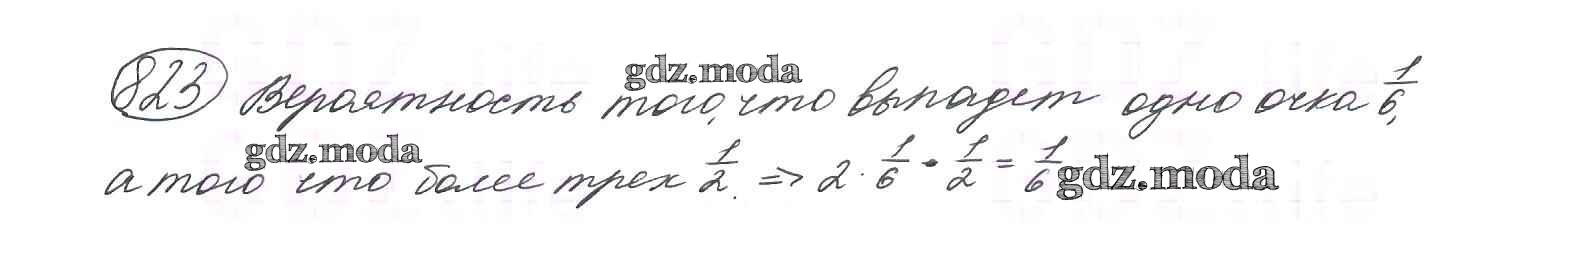 823 Вероятность того, что выпадет одно очка 1/6,
а того что более трех 1/2. => 2 · 1/6 · 1/2 = 1/6
gdz.moda
gdz.moda
gdz.moda